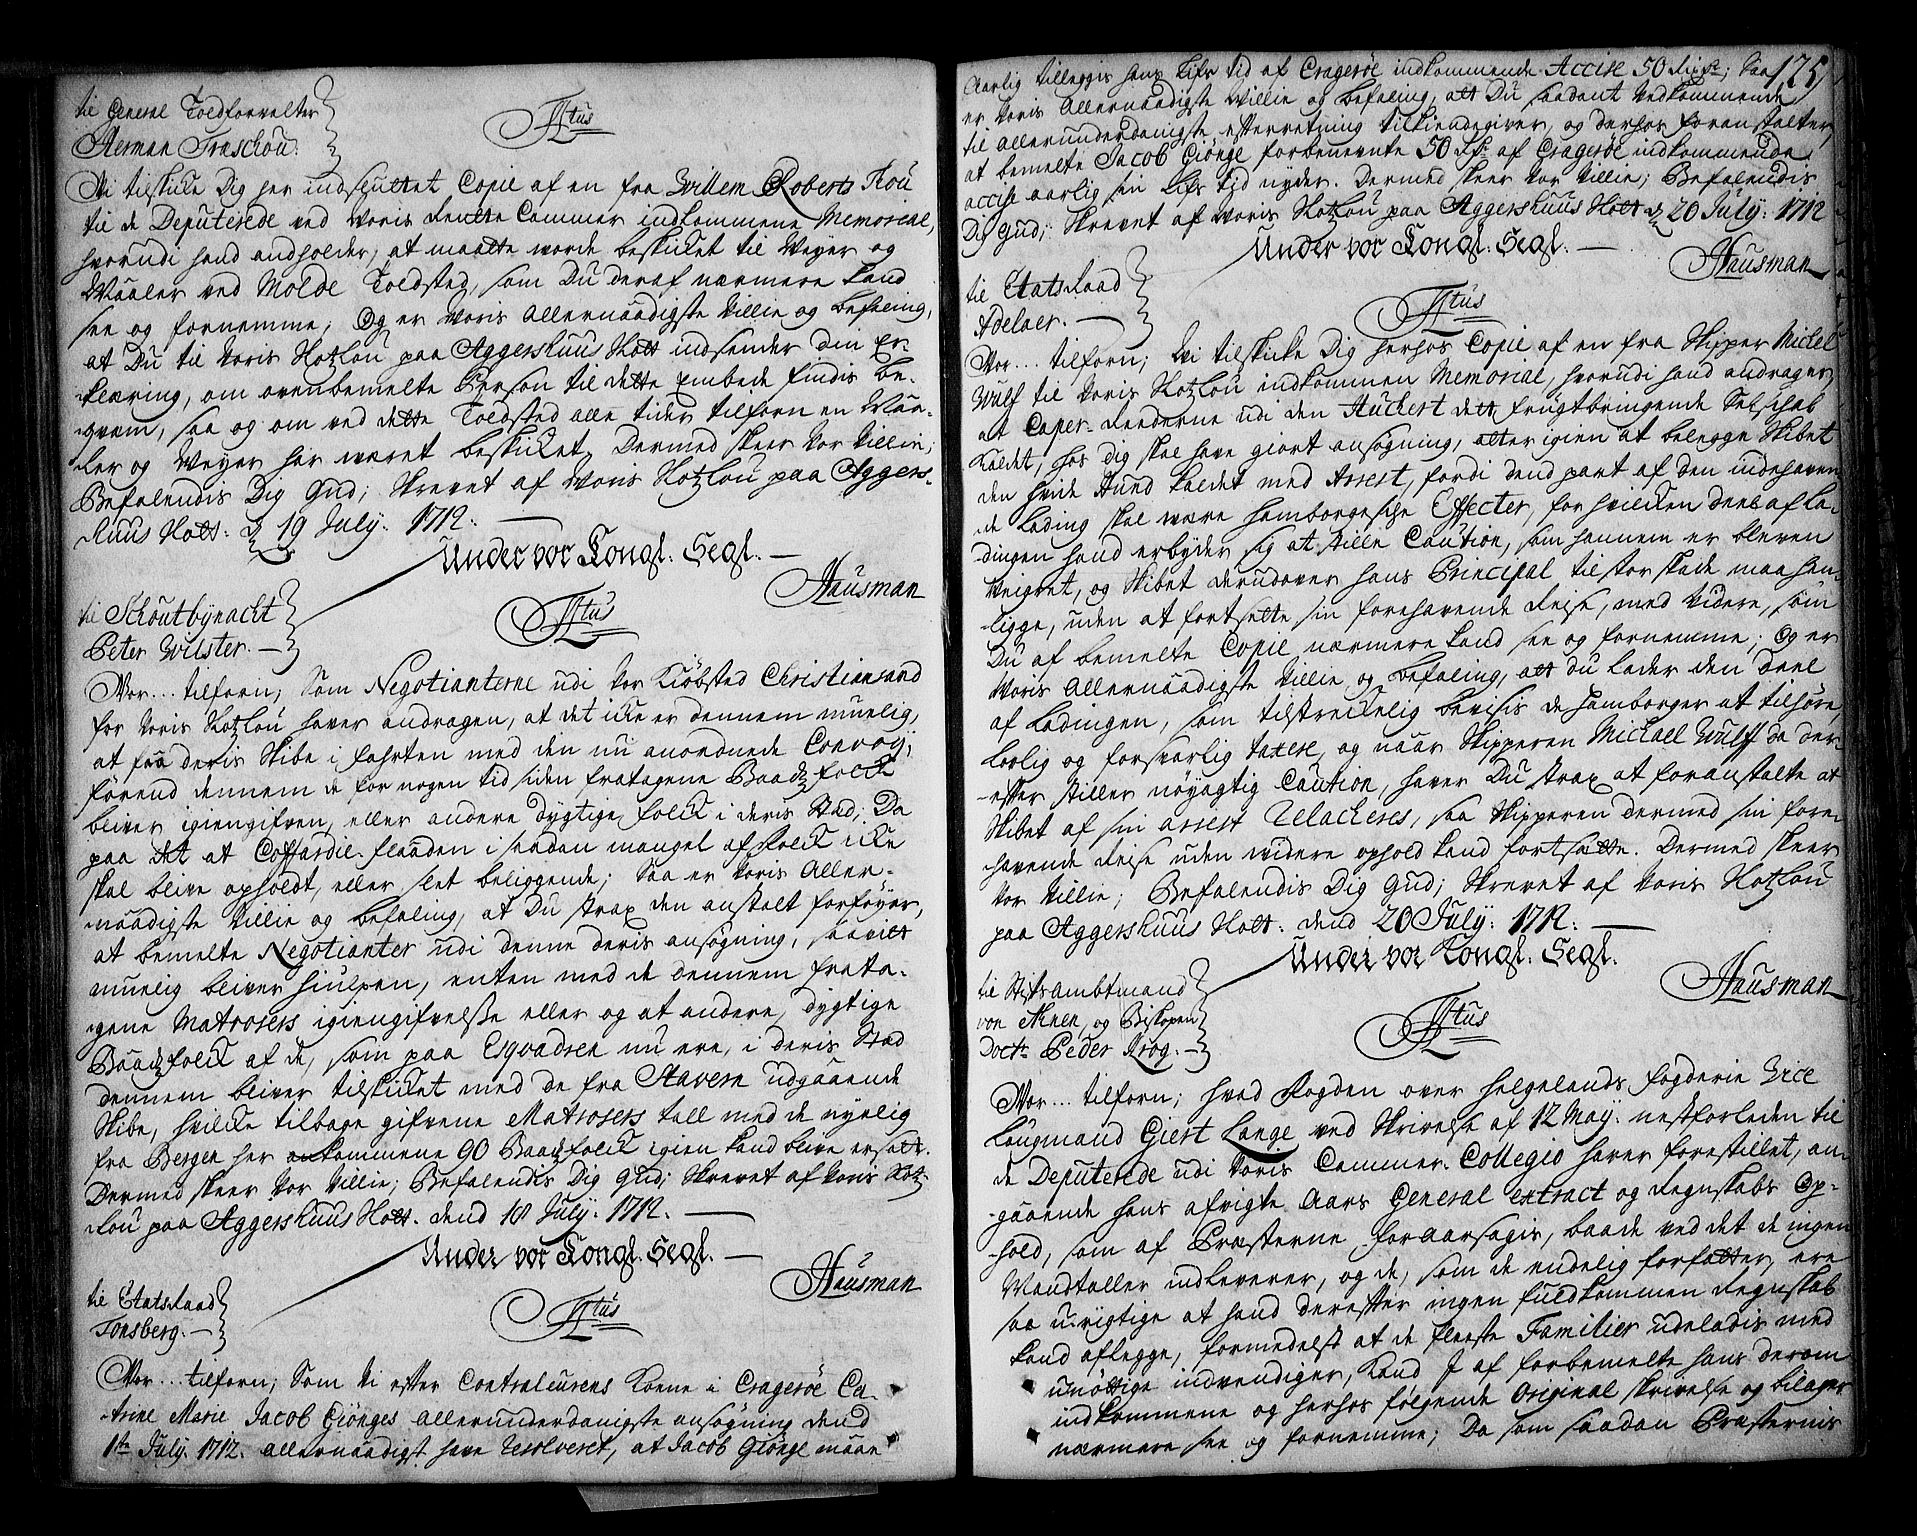 til General Toldforvalter
Herman Traschou.
Ftus
Vi tilskicke Dig her indsluttet Copie af en fra Willem Roberts Kou
til de Deputerede ved Voris Rente Cammer indkommene Memorial,
hvorudi hand andholder, at maatte worde beskicket til Veyer og
Maaler ved Molde Toldsted, som Du deraf nærmere kand
see og fornemme; Og er Voris Allernaadigste Villie og befaling,
at Du til Voris Slotzlou paa Aggershuus Slott indsender din Er-
klæring, om ovenbemelte Person til dette Embede findis be-
qvem, saa og om ved dette Toldsted alle tider tilforn en Maa-
ler og Veyer har været beskicket, Dermed skeer Vor Villie;
Befalendis Dig Gud; Skrevet af Voris Slotzlou paa Aggers-
huus Slott. d 19 July. 1712.
Under vor Kongl. Segl.
Hausman
til Schoutbynacht
Peter Wilster.
Ftus
Vor... tilforn; Som Negotianterne udi Vor Kiøbsted Christiansand
for Voris Slotzlou haver andragen, at det icke er dennem muelig,
at faa deris Skibe i fahrten med den nu anordnede Convoy,
førend dennem de for nogen tid siden fratagene Baadzfolck
bliver igiengifven, eller andere dygtige folck i deris Stad; Da
paa det at Coffardie-flaaden i saadan mangel af folck icke
skal blive opholdt, eller slet beliggende; Saa er Voris Aller-
naadigste Villie og befaling, at Du strax den anstalt forføyer,
at bemelte Negotianter udi denne deris ansøgning, saavit
muelig bliver hiulpen, enten med de dennem frata-
gene Matrosers igiengifvelse eller og at andere, dygtige
Baadzfolck af de, som paa Esqvadren nu ere, i deris Stad
dennem bliver tilskicket med de fra Stavern udgaaende
Skibe, hvilcke tilbage gifvene Matrosers tall med de nylig
fra Bergen her ankommene 90 Baadzfolck igien kand blive ersatt.
Dermed skeer Vor Villie; Befalendis Dig Gud; Skrevet af Voris Slotz-
lou paa Aggershuus Slott. dend 18 July. 1712.
Under vor Kongl. Segl.
Hausman
til Etatsraad
Tonsberg.
Ftus
Vor... tilforn; Som Vi efter Contraleurens Kone i Cragerøe Ca-
trine Marie Jacob Giønges allerunderdanigste ansøgning dend
1ste July. 1712. allernaadigst have resolveret, at Jacob Giønge maae
175
Aarlig tilleggis hans Lifs tid af Cragerøe indkommende Accise 50 Rixdr; Saa
er Voris Allernaadigste Villie og befaling, att Du saadant Vedkommende
til allerunderdanigste efterretning tilkiendegiver, og derhos foranstalter,
at bemelte Jacob Giønge forbenevnte 50 Rdr af Cragerøe indkommende
accise aarlig sin Lifs tjd nyder. Dermed skeer Vor Villie; Befalendis
Dig Gud; Skrevet af Voris Slotzlou paa Aggershuus Slott d 20 July. 1712
Under vor Kongl. Segl.
Hausman
til Etatsraad
Adelaer.
Ftus
Vor... tilforn; Vi tilskicke Dig herhos Copie af en fra Skipper Michel
Wulf til Voris Slotzlou indkommen Memorial, hvorudi hand andrager,
at Caper-Reederne udi den Huckert dett frugtbringende Selschab
kaldet, hos dig skal have giort ansøgning, atter igien at belegge Skibet
den hvide Hund kaldet med Arrest, fordi dend part af den indehaven-
de Lading skal være hamborgesche Effecter, for hvilcken deel af La-
dingen hand erbyder sig at stille Caution, som hannem er bleven
Veigret, og Skibet derudover hans Principal til stor skade maa hen-
ligge, uden at fortsette sin forehavende Reise, med Videre, som
Du af bemelte Copie nærmere kand see og fornemme; Og er
Voris Allernaadigste Villie og befaling, att du lader den deel
af Ladingen, som tilstreckelig bevisis de Hamborger at tilhøre,
Lovlig og forsvarlig taxere, og naar Skipperen Michael Wulff da der-
efter stiller nøyagtig Caution, haver Du strax at foranstalte at
Skibet af sin arrest relacheres, saa Skipperen dermed sin fore-
havende Reise uden videre ophold kand fortsætte. Dermed skeer
Vor Villie; Befalendis Dig Gud; Skrevet af Voris Slotzlou
paa Aggershuus Slott. dend 20 July. 1712.
Under vor Kongl. Segl.
Hausman
til Stiftsambtmand
von Ahnen, og Biskopen
Doctr Peder Krog.
Ftus
Vor... tilforn; hvad Fogden over Helgelands fogderie Vice
Laugmand Giert Lange ved Skrivelse af 12 May. nestforleden til
de Deputerede udi Voris Cammer-Collegio haver forestillet, an-
gaaende hans afvigte Aars General extract og Regnskabs Op-
hold, som af Præsterne foraarsagis, baade ved det de ingen
Mandtaller indleverer, og de, som de endelig forfatter, ere
saa urigtige at hand derefter ingen fuldkommen Regnskab
kand aflegge, formedelst at de fleeste Familier udeladis med
unøttige indvendiger, kand J af forbemelte hans derom
indkommene og herhos følgende Original skrivelse og bilager
nærmere see og fornemme; Da som saadan Præsternis